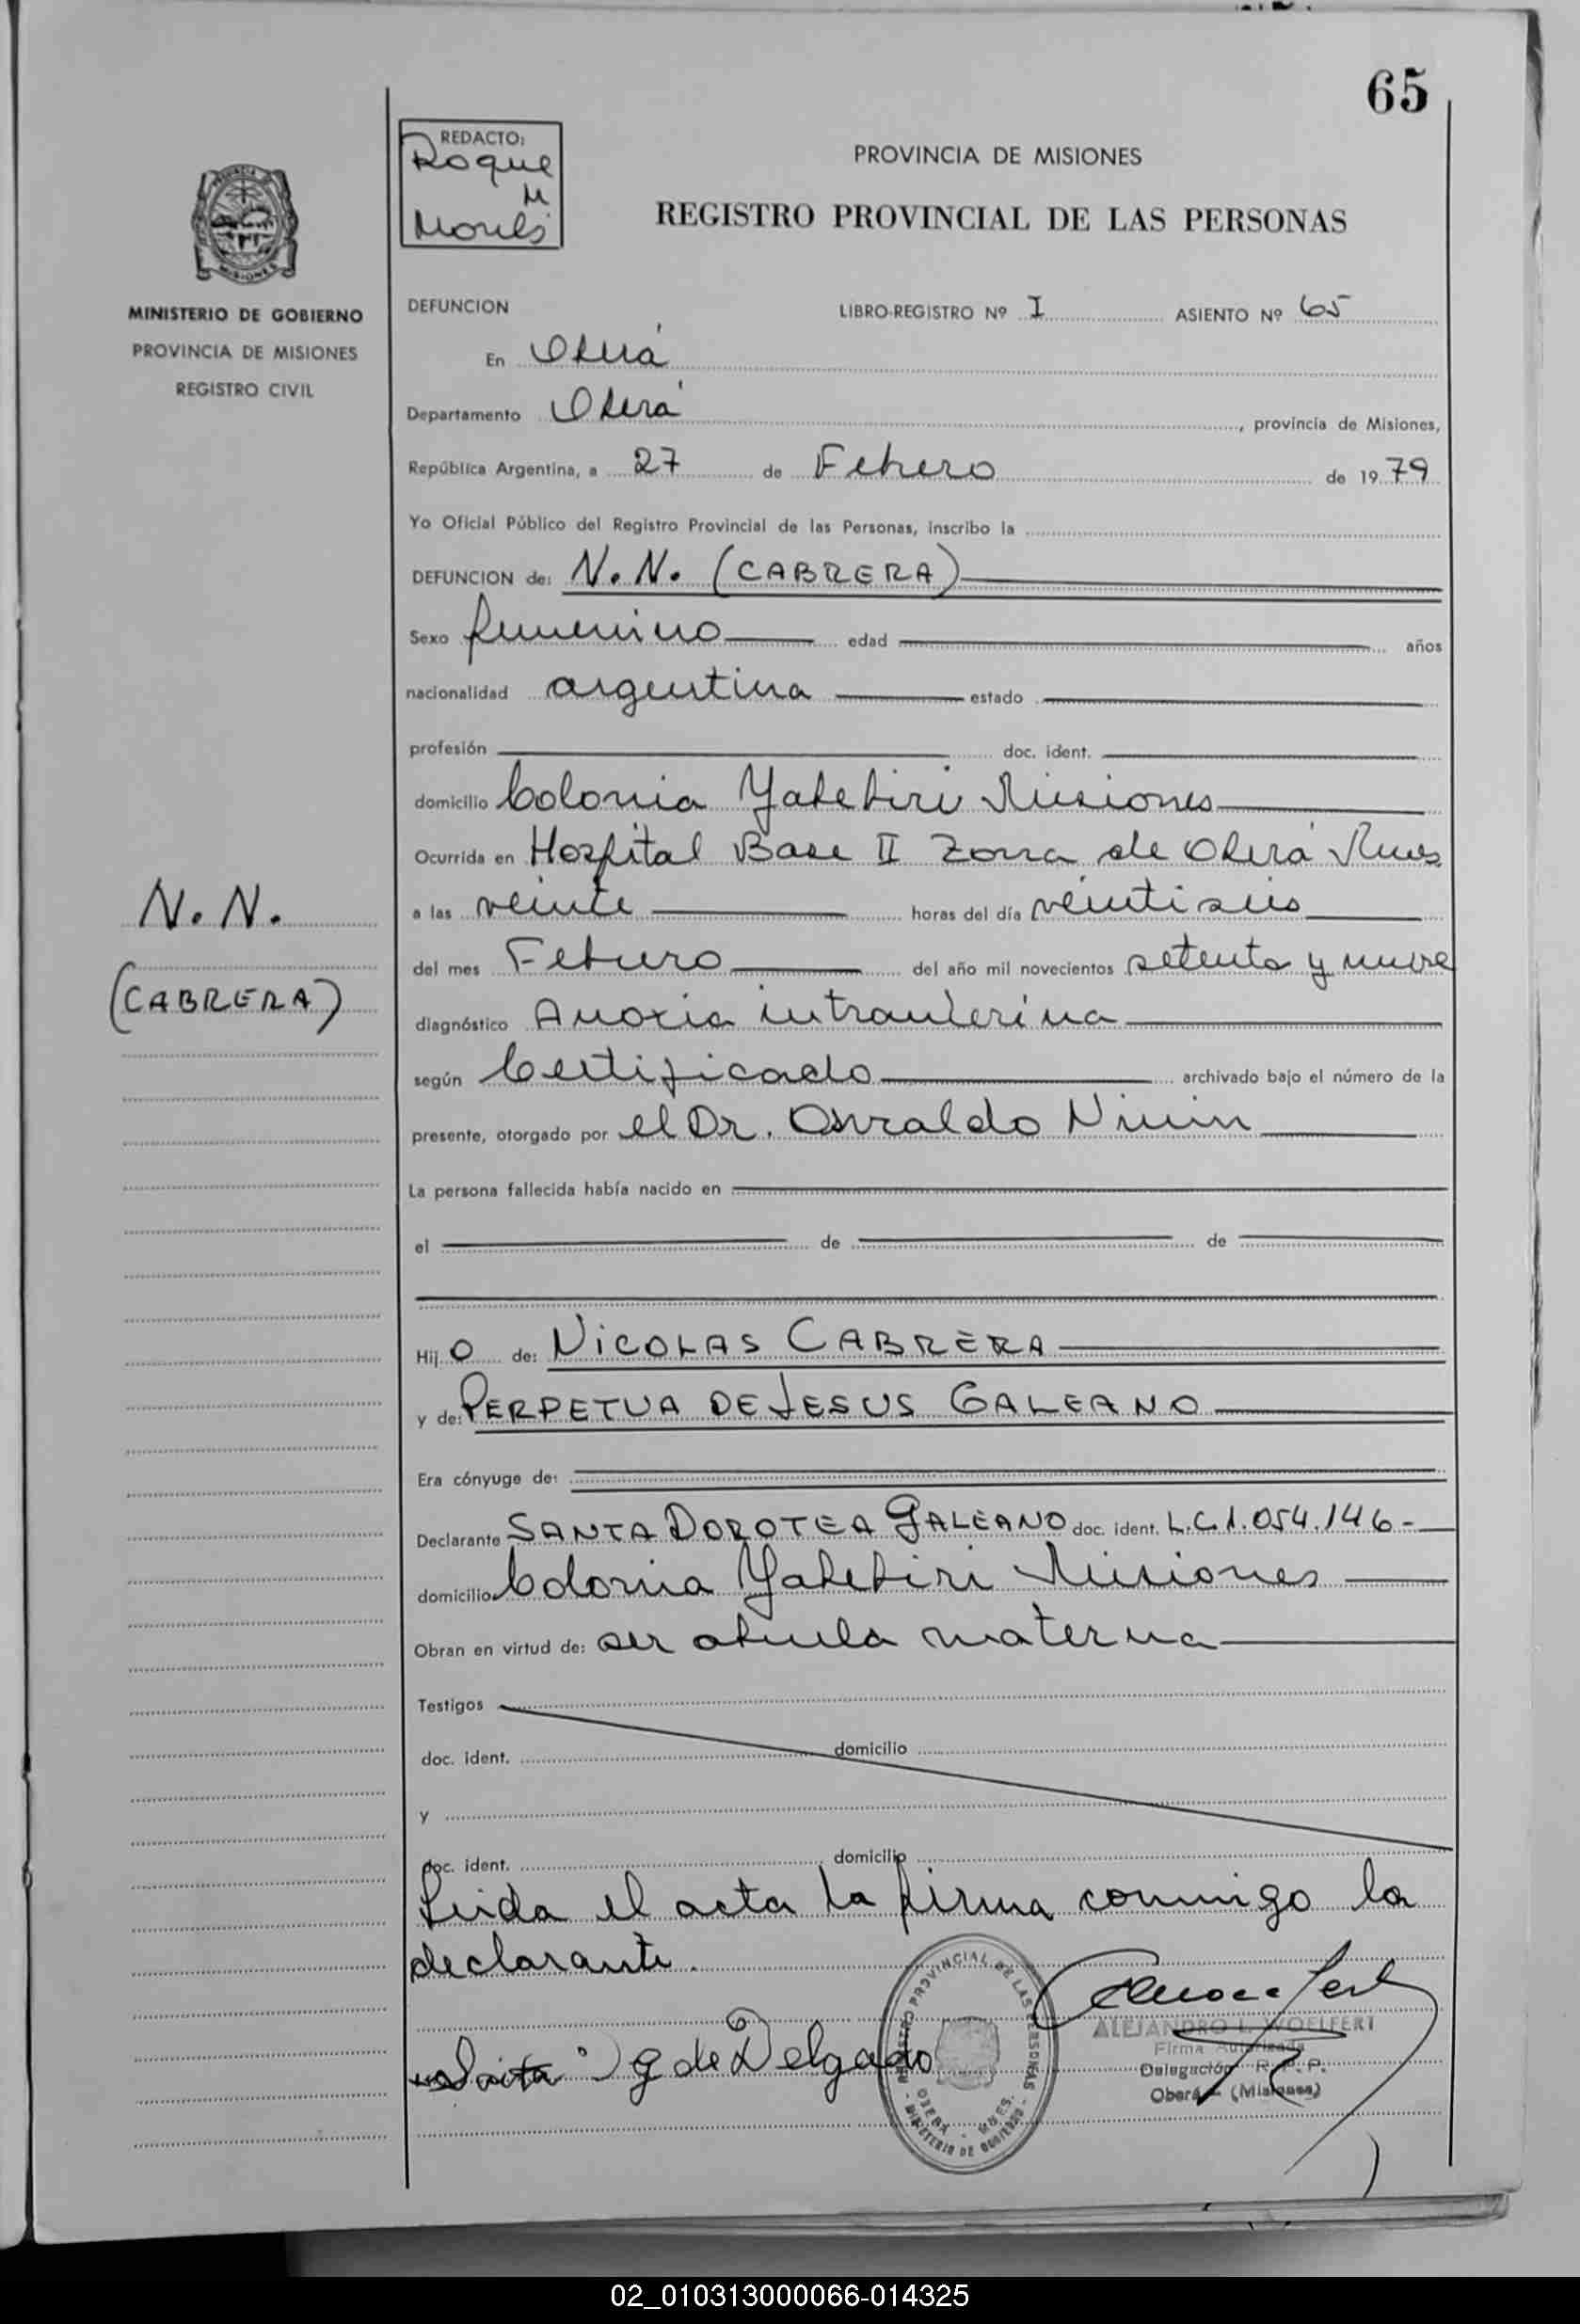 65
REDACTO:
Roque
M
Morales
PROVINCIA DE MISIONES
REGISTRO PROVINCIAL DE LAS PERSONAS
MINISTERIO DE GOBIERNO
PROVINCIA DE MISIONES
REGISTRO CIVIL
DEFUNCION LIBRO-REGISTRO Nº I ASIENTO Nº 65
En Oberá
Departamento Oberá, provincia de Misiones,
República Argentina, a 27 de Febrero de 1979
Yo Oficial Público del Registro Provincial de las Personas, inscribo la
DEFUNCION de: N.N. (CABRERA)
Sexo femenino edad años
nacionalidad argentina estado
profesión doc. ident.
domicilio Colonia Yabebiri Misiones
Ocurrida en Hospital Base II Zona de Oberá Mnes
N.N.
(CABRERA)
a las veinte horas del día veintiseis
del mes Febrero del año mil novecientos setenta y nueve
diagnóstico Anoxia intrauterina
según Certificado archivado bajo el número de la
presente, otorgado por el Dr. Osvaldo
La persona fallecida había nacido en
el de de
Hijo de: NICOLAS CABRERA
y de: PERPETUA DE JESUS GALEANO
Era cónyuge de:
Declarante SANTA DOROTEA GALEANO doc. ident. L.C.1.054.146-
domicilio Colonia Yabebiri Misiones
Obran en virtud de: ser abuela materna
Testigos
doc. ident. domicilio
y
doc. ident. domicilio
Leida el acta la firma conmigo la
declarante.
g de Delgado
REGISTRO PROVINCIAL DE LAS PERSONAS
OBERA - MNES.
MINISTERIO DE GOBIERNO
ALEJANDRO L. WOELFERT
Firma Autorizada
Delegación R. P. P.
Oberá - (Misiones)
02_010313000066-014325